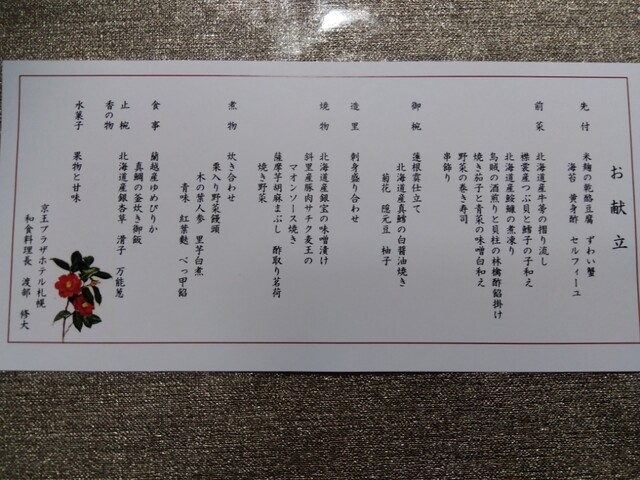 お献立
先付　米麹の乾酪豆腐　ずわい蟹
海苔　黄身酢　セルフィーユ
前菜　北海道産牛蒡の摺り流し
襟裳産つぶ貝と鱈子の子和え
北海道産鮟鱇の煮凍り
烏賊の酒煎りと貝柱の林檎酢餡掛け
焼き茄子と青菜の味噌白和え
野菜の巻き寿司
串飾り
御椀　蓮根霙仕立て
北海道産真鱈の白醤油焼き
菊花　隠元豆　柚子
造里　刺身盛り合わせ
焼物　北海道産銀宝の味噌漬け
斜里産豚肉サチク麦王の
マオンソース焼き
薩摩芋胡麻まぶし　酢取り茗荷
焼き野菜
煮物　炊き合わせ
栗入り野菜饅頭
木の葉人参　里芋白煮
青味　紅葉麩　べっ甲餡
食事　蘭越産ゆめぴりか
真鯛の釜炊き御飯
止椀　北海道産銀杏草　滑子　万能葱
香の物
水菓子　果物と甘味
京王プラザホテル札幌
和食料理長　渡部　修大